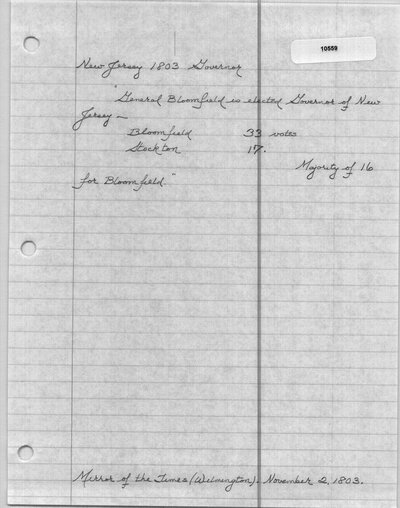 10559
New Jersey 1803 Governor
"General Bloomfield is elected Governor of New
Jersey —
Bloomfield 33 votes
Stockton 17.
Majority of 16
for Bloomfield."
Mirror of the Times (Wilmington). November 2, 1803.